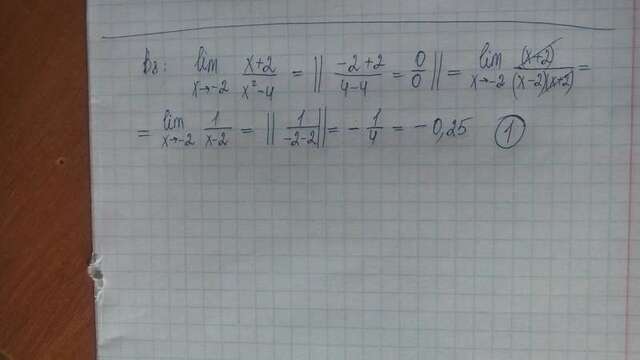 B8: lim x→-2 x+2 / x²-4 = || -2+2 / 4-4 = 0/0 || = lim x→-2 (x+2) / (x-2)(x+2) =
= lim x→-2 1 / x-2 = || 1 / -2-2 || = - 1/4 = -0,25 1